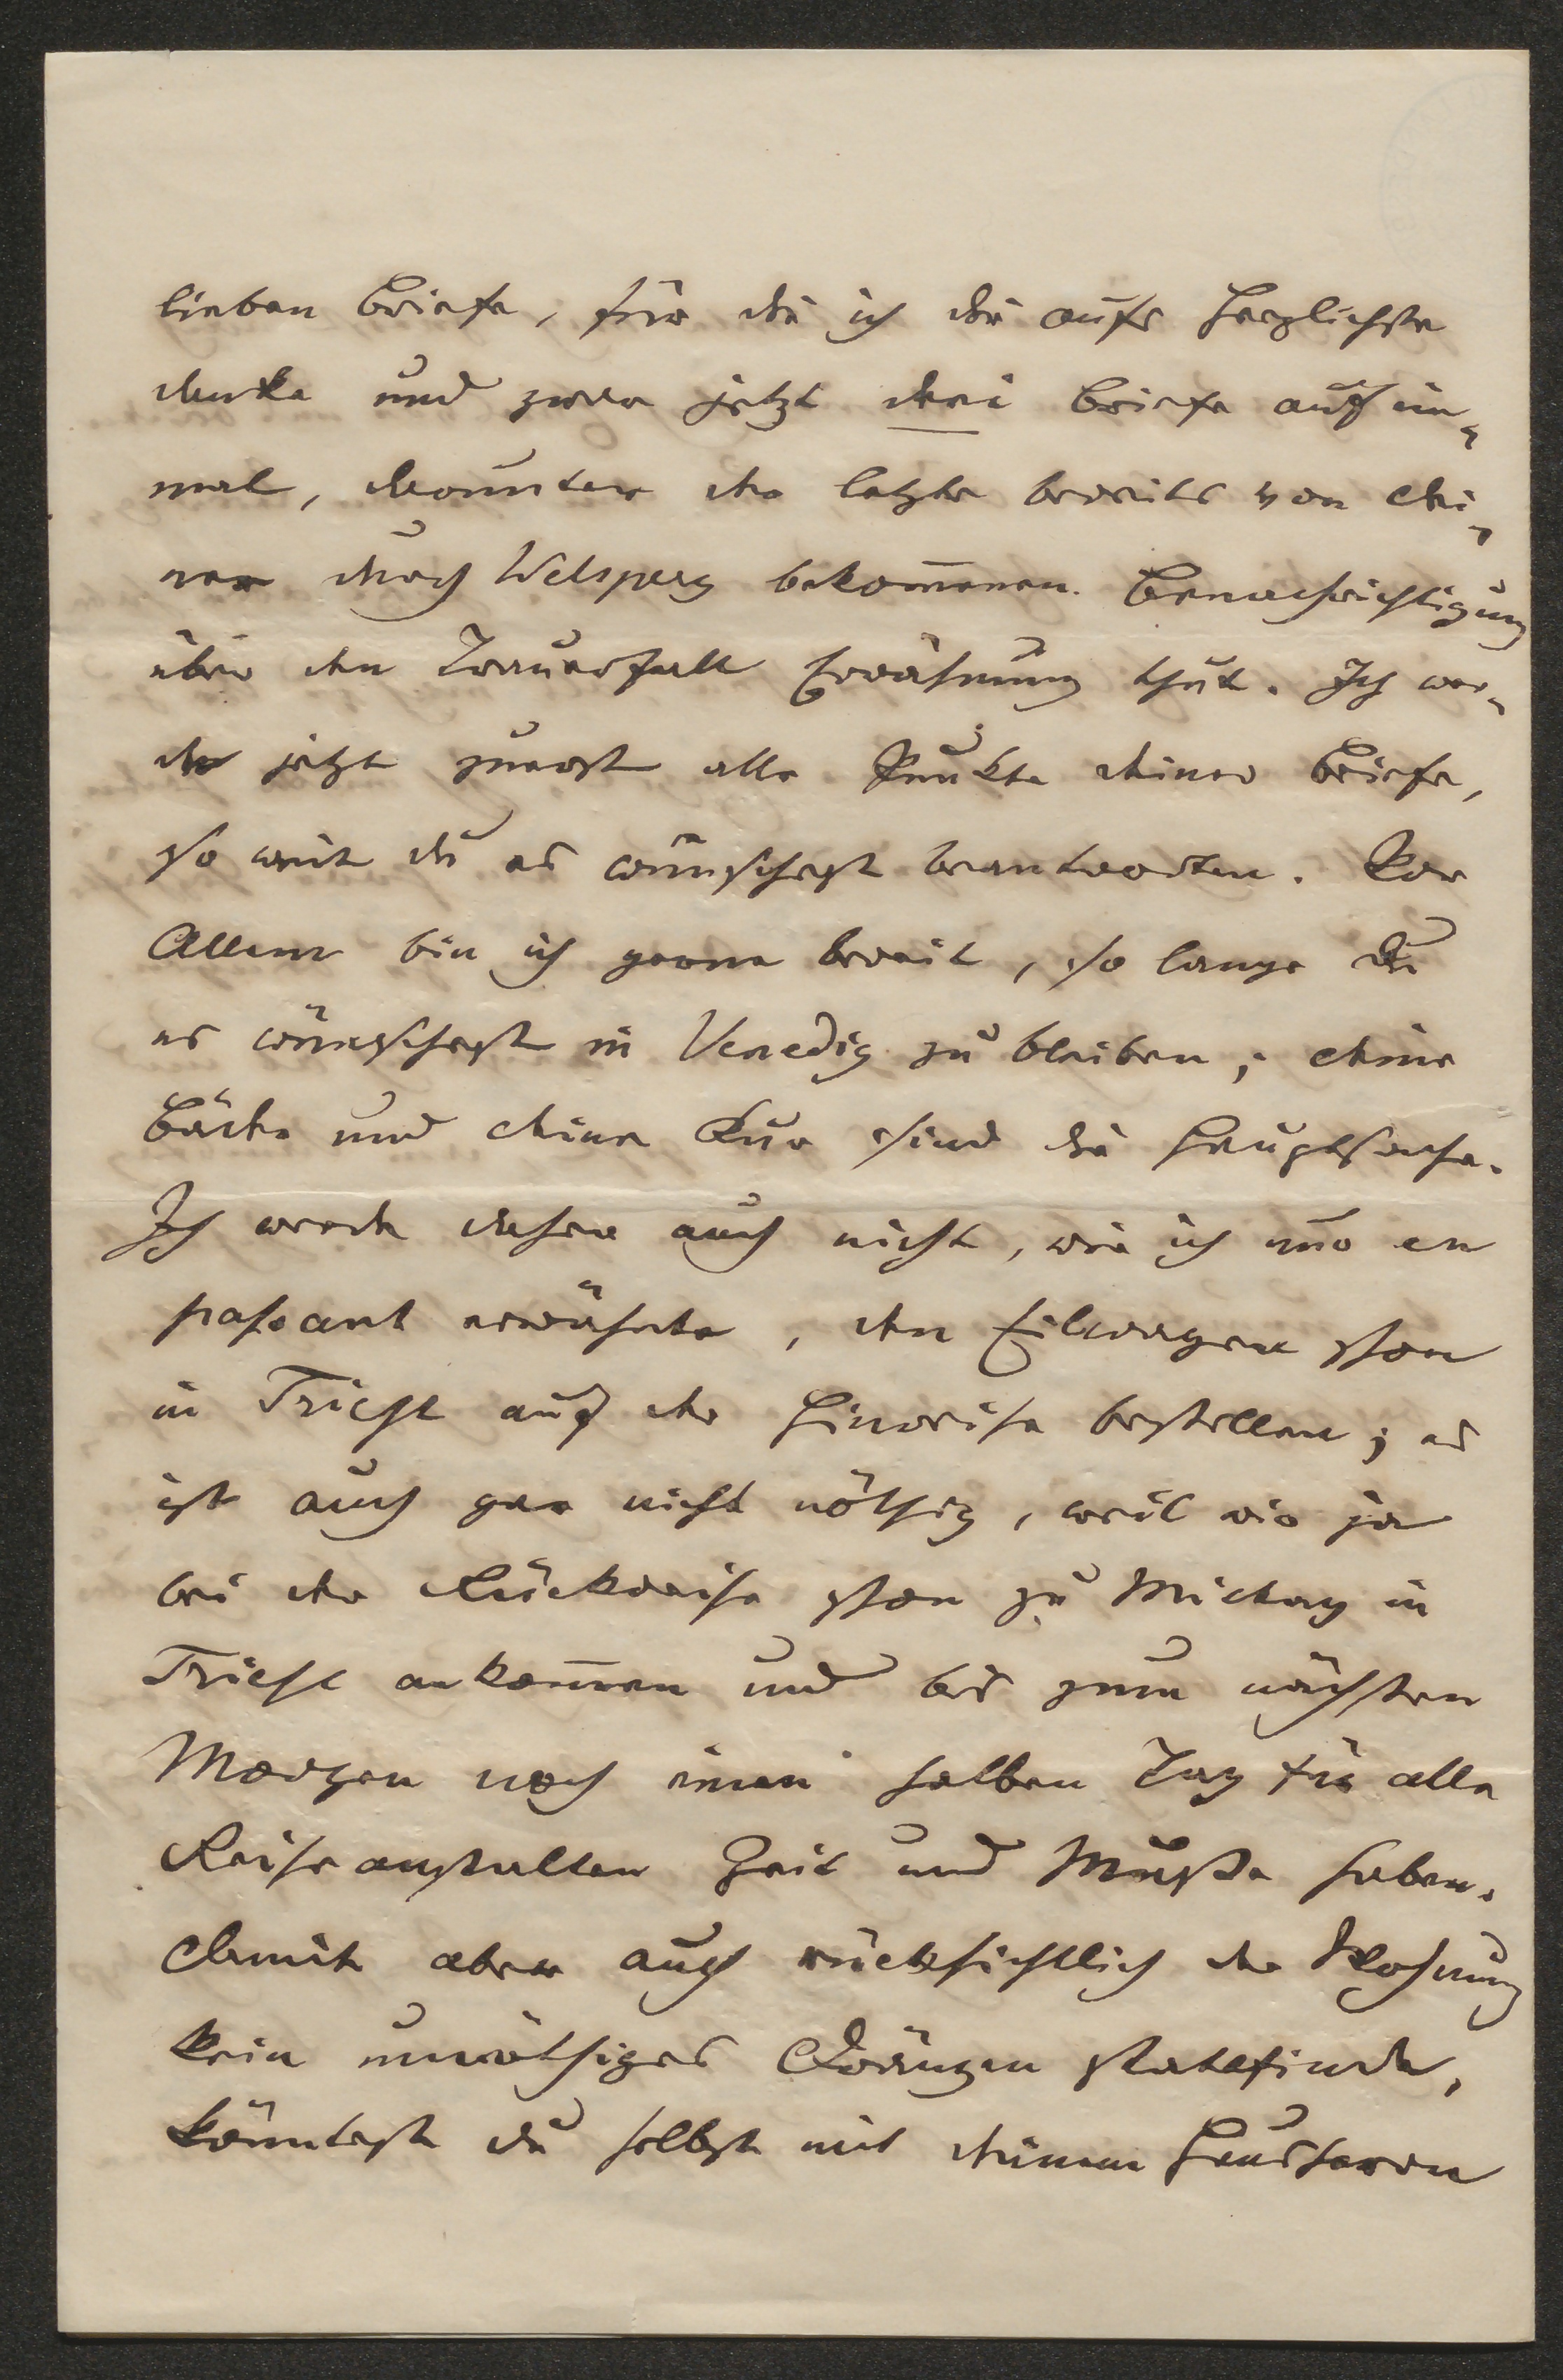 lieben Briefe, für die ich dir aufs Herzlichste
danke und zwar jetzt drei Briefe auf ein-
mal, darunter der letzte bereits von dei-
ner durch Welsperg bekom̅enen Benachrichtigung
über den Trauerfall Erwähnung thut. Ich wer-
de jetzt zuerst alle Punkte deiner Briefe,
so weit du es wünschest beantworten. Vor
Allem bin ich gerne bereit, so lange du
es wünschest in Venedig zu bleiben; deine
Bäder und deine Kur sind die Hauptsache.
Ich werde daher auch nicht, wie ich nur en
passant erwähnte, den Eilwagen schon
in Triest auf der Hinreise bestellen; es
ist auch gar nicht nöthig, weil wir ja
bei der Rückreise schon zu Mittag in
Triest ankom̅en und bis zum nächsten
Morgen noch einen halben Tag für alle
Reiseanstalten Zeit und Muße haben.
Damit aber auch rücksichtlich der Wohnung
kein unnöthiges Drängen stattfinde,
könntest du selbst mit deinem Hausherrn